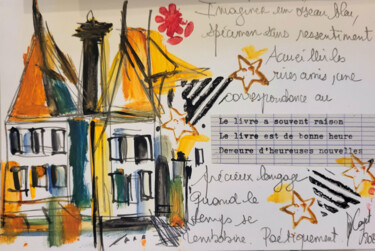 Imaginer un oiseau bleu,
spécimen sans ressentiment
Accueillir les
rires amis, une
correspondance au
Le livre a souvent raison
Le livre est de bonne heure
Demeure d'heureuses nouvelles
précieux langage
Quand le
temps se
Poétiquement